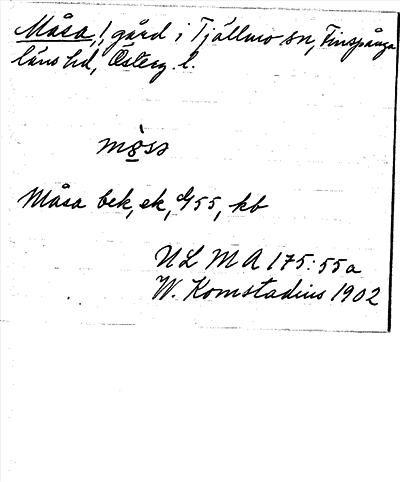 Måsa, ! gård i Tjällmo sn, Finspånga
läns hd, Österg. l.
Måsa bek, ek, 55, kb
ULMA 175:55a
W. Komstadius 1902